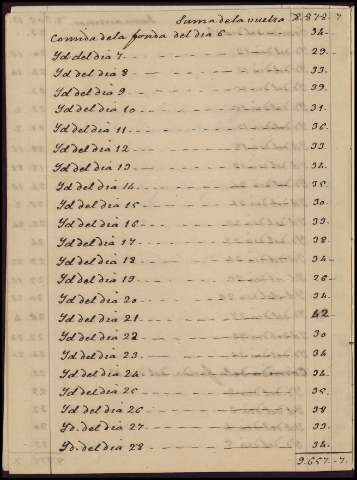 Suma de la vuelta 8.878. 7
Comida de la fonda del dia 6 34.
Yd del dia 7 29.
Yd del dia 8 33.
Yd del dia 9 39.
Yd del dia 10 31.
Yd del dia 11 36.
Yd del dia 12 33.
Yd del dia 13 34.
Yd del dia 14 35.
Yd del dia 15 30.
Yd del dia 16 33.
Yd del dia 17 38.
Yd del dia 18 34.
Yd del dia 19 26.
Yd del dia 20 34.
Yd del dia 21 42
Yd del dia 22 30
Yd del dia 23 34
Yd del dia 24 34.
Yd del dia 25 35.
Yd del dia 26 38
Yd. del dia 27 33.
Yd. del dia 28 34.
9.657. 7.